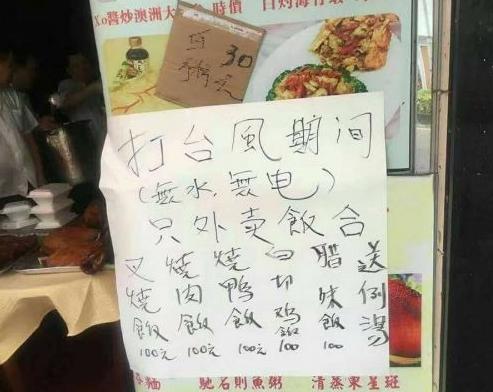 Xo醬炒澳洲大
時價
白灼海
粥 30元
打台風期间
(無水,無电)
只外卖飯合
叉燒飯 100元
燒肉飯 100元
燒鴨飯 100元
白切鸡飯 100
腊味飯 100
送例湯
馳名則魚粥
清蒸東星斑